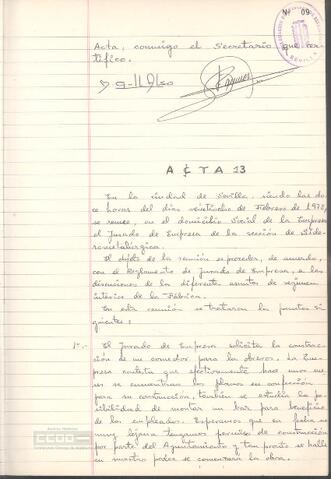 Nº 09
Acta, conmigo el Secretario que cer-
tifico.
ACTA 13
En la ciudad de Sevilla, siendo las do-
ce horas del día de Febrero de 1970,
se reune, en el domicilio social de la Empresa
el Jurado de Empresa de la sección de Side-
rometalúrgica.
El objeto de la reunión es proceder, de acuerdo,
con el Reglamento de Jurado de Empresa, a las
discusiones de la diferente asuntos de régimen
interior de la Fábrica.
En esta reunión se trataron la puntos si-
guientes:
1º.- El Jurado de Empresa solicita la construc-
ción de un comedor para los obreros. La Em-
presa contesta que efectivamente hace unos me-
ses se encuentran los planos en confección
para su construcción, también se estudia la po-
sibilidad de montar un bar para beneficio
de los empleados. Esperamos que en fecha no
muy lejana tengamos permiso de construcción
por parte del Ayuntamiento y tan pronto se halle
en nuestro poder se comenzara la obra.
Archivo Histórico
CCOO